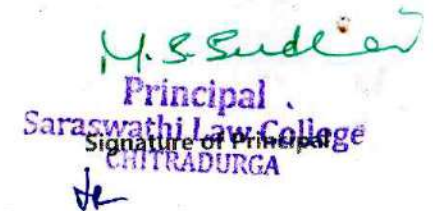 M. S. Sudhar
Principal
Saraswathi Law College
Signature of Principal
CHITRADURGA